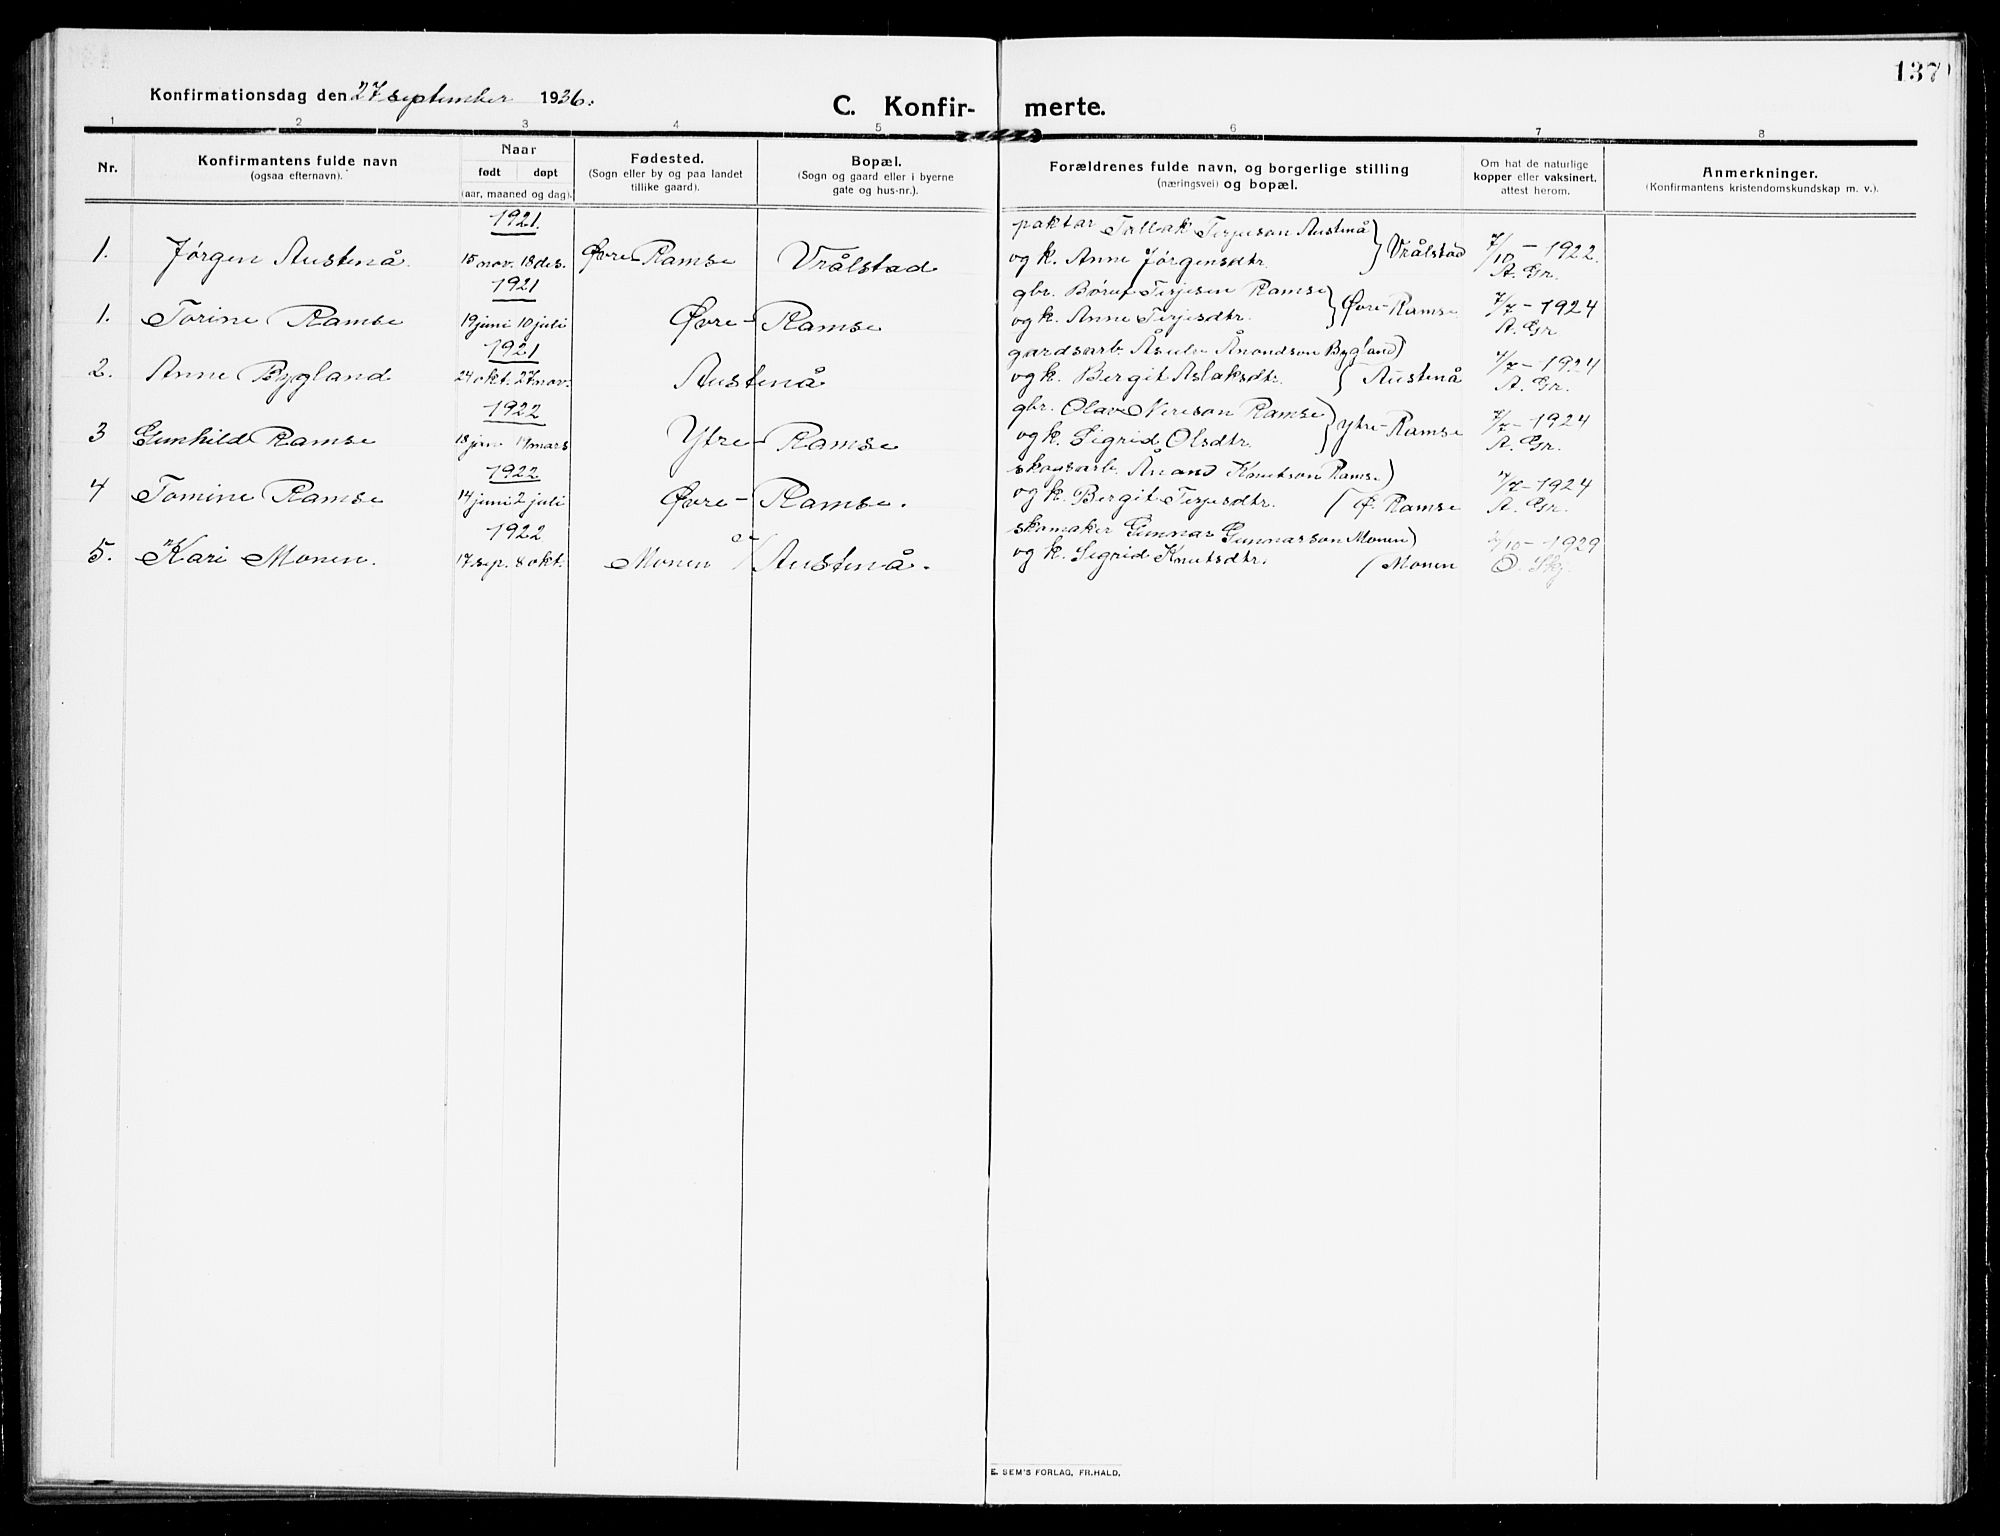 137
Konfirmationsdag den 27 september 1936.
C. Konfir- merte.
1 2 3 4 5 6 7 8
Nr.
Konfirmantens fulde navn
(ogsaa efternavn).
Naar
født døpt
(aar, maaned og dag).
Fødested.
(Sogn eller by og paa landet
tillike gaard).
Bopæl.
(Sogn og gaard eller i byerne
gate og hus-nr.).
Forældrenes fulde navn, og borgerlige stilling
(næringsvei) og bopæl.
Om hat de naturlige
kopper eller vaksinert,
attest herom.
Anmerkninger.
(Konfirmantens kristendomskundskap m. v.).
1921. paktar Tallak Terjeson Austenå
1. Jørgen Austenå. 15 nov. 18 des. Øvre Ramse Vrålstad og k. Anne Jørgensdtr. Vrålstad 7/10 - 1922. A. Gr.
1921 gbr. Terjesen Ramse
1. Torine Ramse 19 juni 10 juli Øvre-Ramse og k. Anne Terjesdtr. Øvre-Ramse 7/7 - 1924 A. Gr
1921 gardsarb. Åsulv Ånondson Bygland
2. Anne Bygland 24 okt. 27 nov. Austenå og k. Bergit Aslaksdtr. Austenå 7/7 - 1924 A. Gr.
1922 gbr. Olav Nereson Ramse
3 Gunhild Ramse 18 mars Ytre-Ramse og k. Sigrid Olsdtr. Ytre-Ramse 7/7 - 1924 A. Gr.
1922 skogsarb. Ånond Knutson Ramse
4 Tomine Ramse 14 juni 2 juli Øvre-Ramse. og k. Bergit Terjesdtr. Ø. Ramse 7/7 - 1924 A. Gr.
1922 skomaker Gunnar Gunnarson Monen
5. Kari Monen. 17 sep. 8 okt. Monen Austenå. og k. Sigrid Knutsdtr. Monen /10 - 1929 O. Skj.
E. SEM'S FORLAG, FR.HALD.